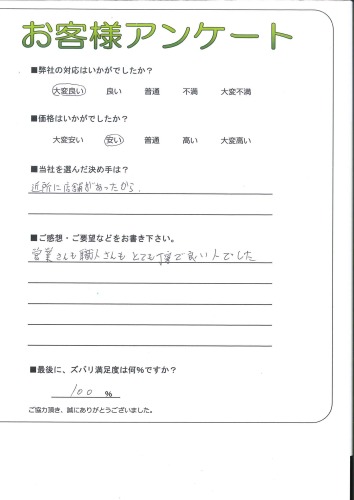 お客様アンケート
■弊社の対応はいかがでしたか？
大変良い 良い 普通 不満 大変不満
■価格はいかがでしたか？
大変安い 安い 普通 高い 大変高い
■当社を選んだ決め手は？
近所に店舗があったから、
■ご感想・ご要望などをお書き下さい。
営業さんも職人さんも とても丁寧で良い人でした
■最後に、ズバリ満足度は何％ですか？
100 ％
ご協力頂き、誠にありがとうございました。